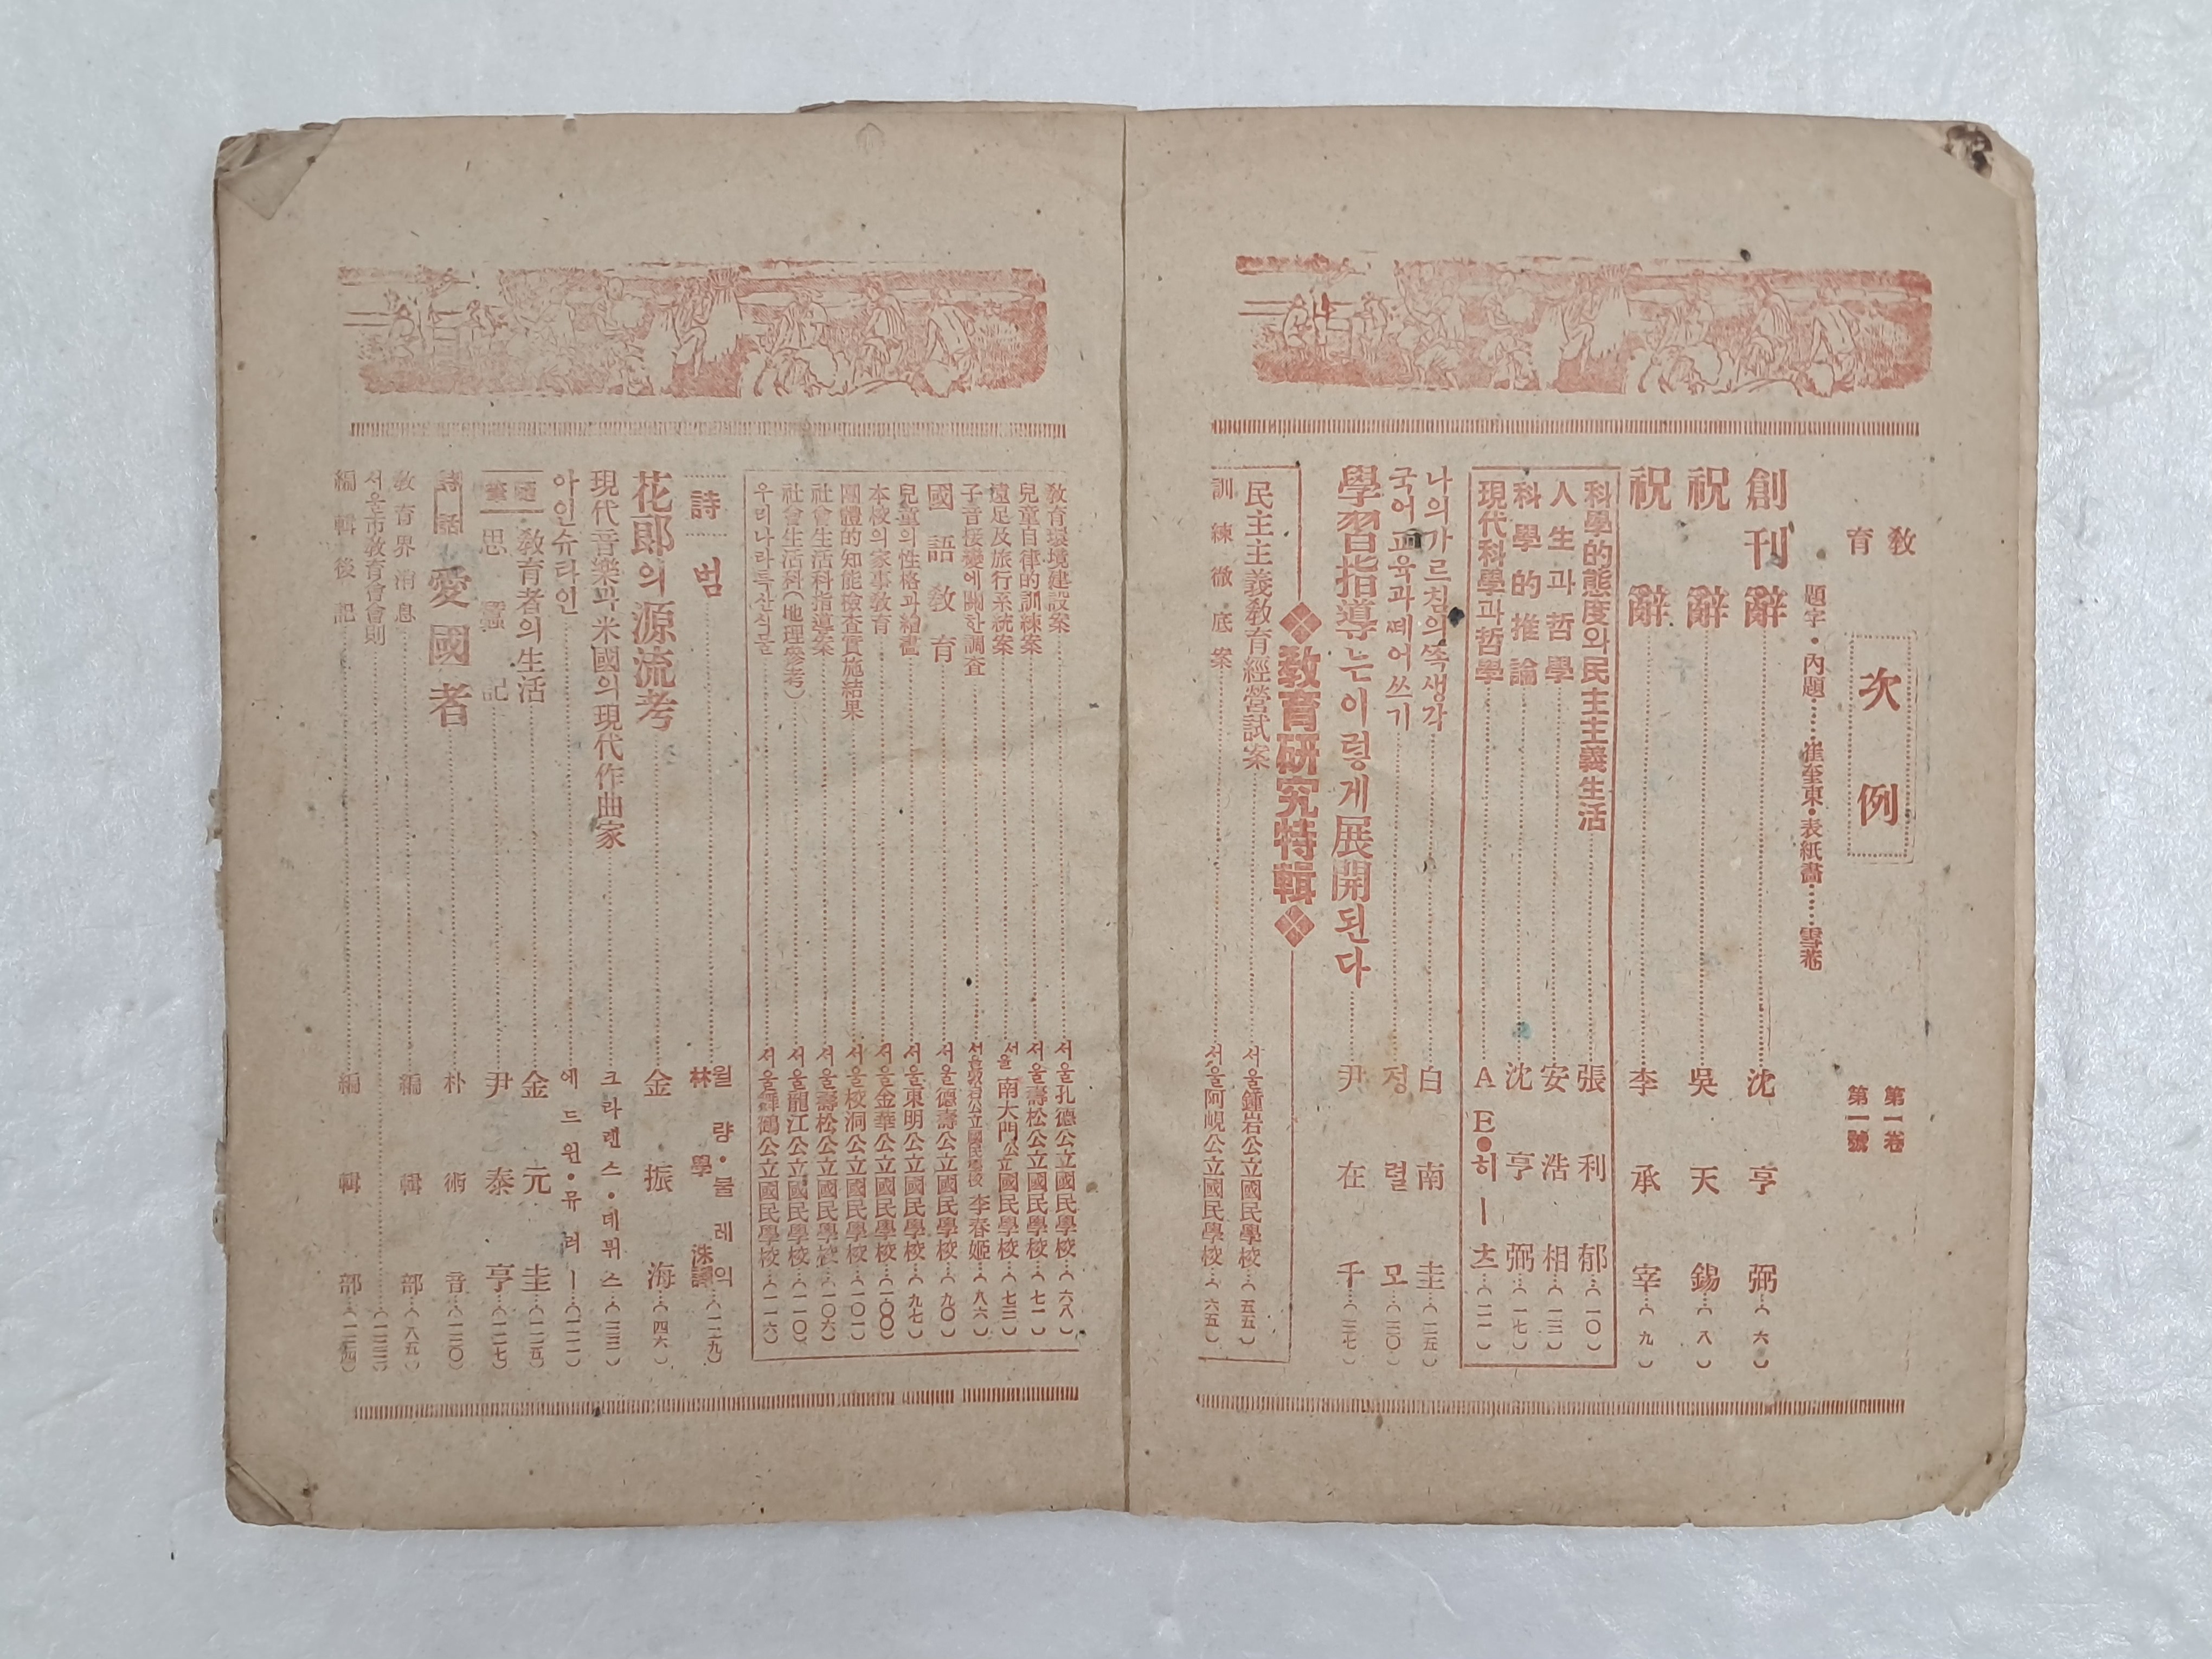 敎育 第一卷 第一號
次例
題字・內題……崔奎東・表紙畵……雪崗
創刊辭……沈亨弼…(六)
祝辭……吳天錫…(八)
祝辭……李承宰…(九)
科學的態度와民主主義生活……張利郁…(一〇)
人生과哲學……安浩相…(一三)
科學的推論……沈亨弼…(一七)
現代科學과哲學……AE●히ー츠…(二一)
나의가르침의쪽생각……白南圭…(二五)
국어교육과떼어쓰기……정렬모…(三〇)
學習指導는이렇게展開된다……尹在千…(三七)
❖敎育硏究特輯❖
民主主義敎育經營試案……서울鍾岩公立國民學校…(五五)
訓練徹底案……서울阿峴公立國民學校…(六五)
敎育環境建設案……서울孔德公立國民學校…(六八)
兒童自律的訓練案……서울壽松公立國民學校…(七一)
遠足及旅行系統案……서울南大門公立國民學校…(七三)
子音接變에關한調査……서울敦岩公立國民學校 李春姬…(八六)
國語敎育……서울德壽公立國民學校…(九〇)
兒童의性格과繪畵……서울東明公立國民學校…(九七)
本校의家事敎育……서울金華公立國民學校…(一〇〇)
團體的知能檢査實施結果……서울校洞公立國民學校…(一〇一)
社會生活科指導案……서울壽松公立國民學校…(一〇六)
社會生活科(地理參考)……서울龍江公立國民學校…(一一〇)
우리나라특산식물……서울舞鶴公立國民學校…(一一六)
詩 범……윌량・불레익 林學洙譯…(一二九)
花郞의源流考……金振海…(四六)
現代音樂과米國의現代作曲家……크라렌스・데뷔스…(三三)
아인슈라인……에드윈・뮤러ー…(一二二)
隨筆 敎育者의生活……金元圭…(一二五)
思蠶記……尹泰亨…(一二七)
詩話 愛國者……朴術音…(一三〇)
敎育界消息……編輯部…(八五)
서울市敎育會會則……(一三三)
編輯後記……編輯部…(一三四)